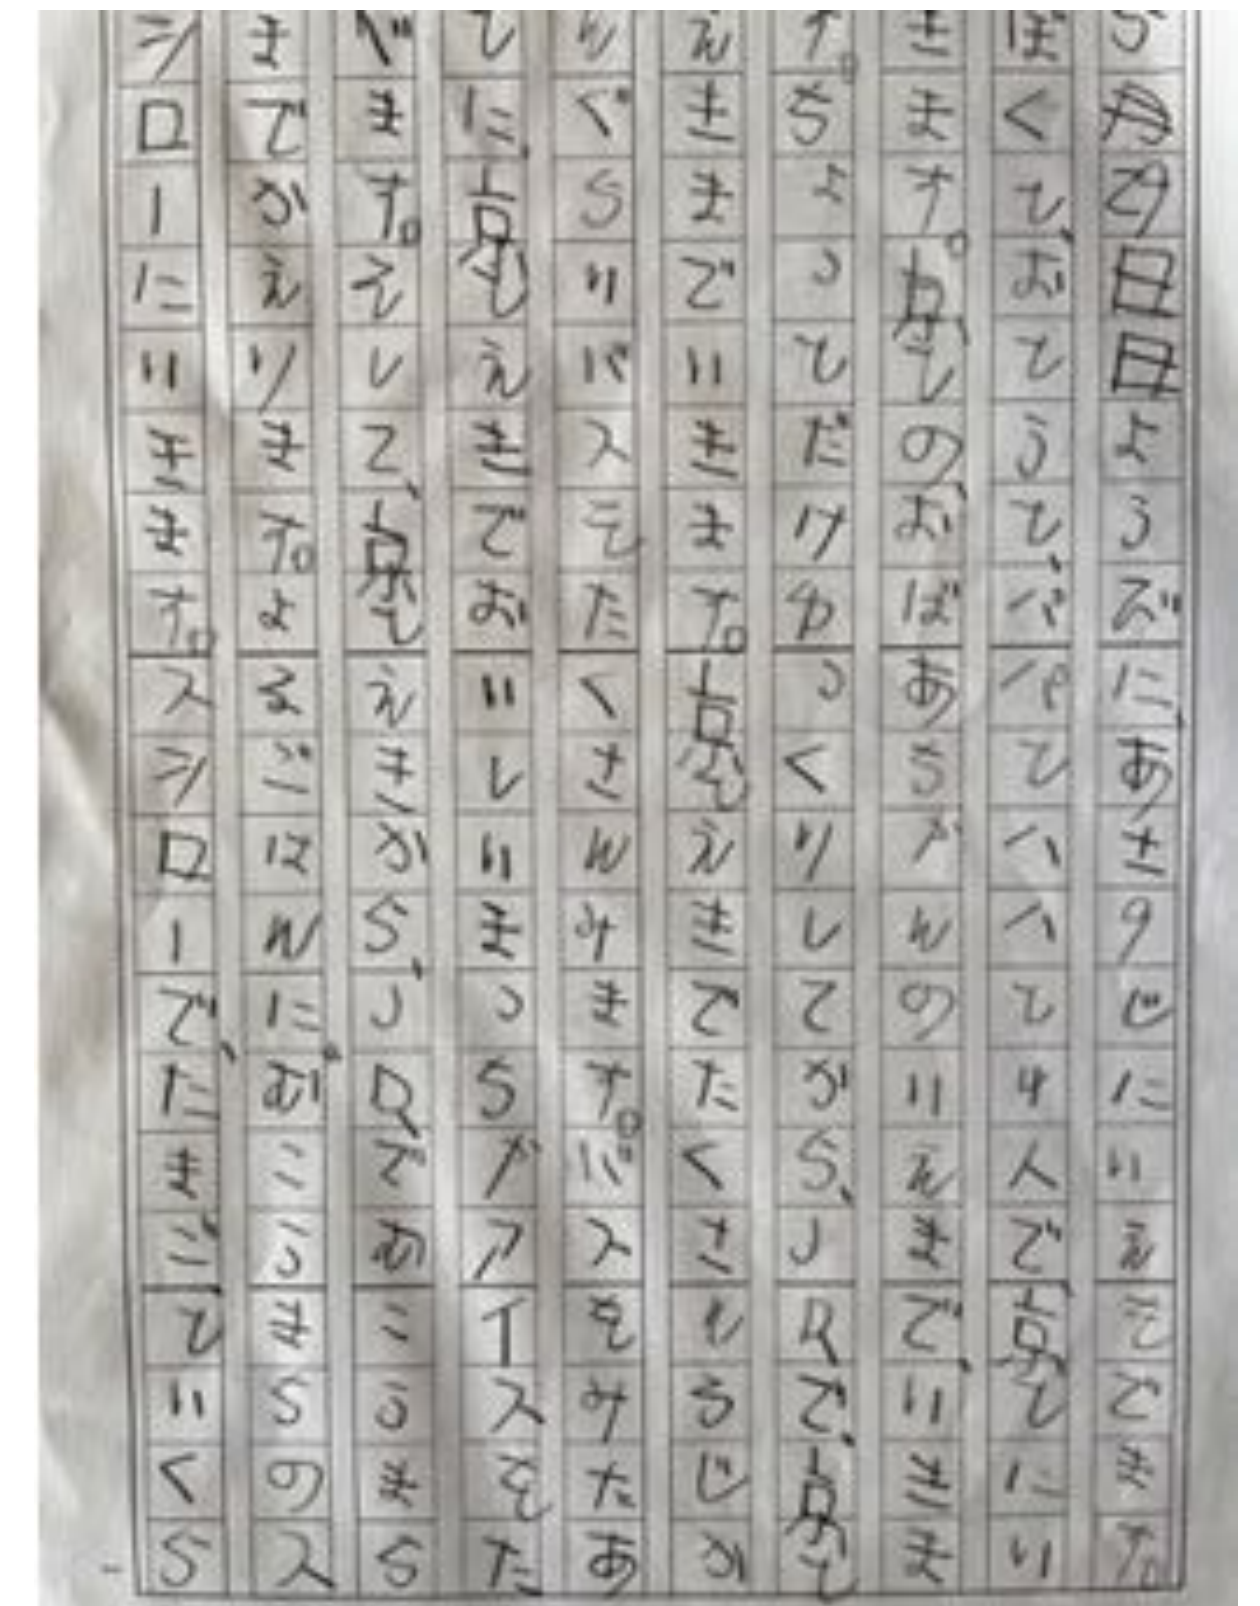 5月29日日ようびに、あさ9じにいえをでます。
ぼくと、おとうと、パパとハハと4人で、京とにい
きます。京との、おばあちゃんのいえまで、いきま
す。ちょっとだけゆっくりしてから、JRで、京と
えきまでいきます。京とえきでたくさんじか
んぐらいバスをたくさんみます。バスをみたあ
とに、京とえきでおいしいまっちゃアイスをた
べます。そして、京とえきから、JRでむこうまち
までかえります。よるごはんに。むこうまちのス
シローにいきます。スシローで、たまご、といくら